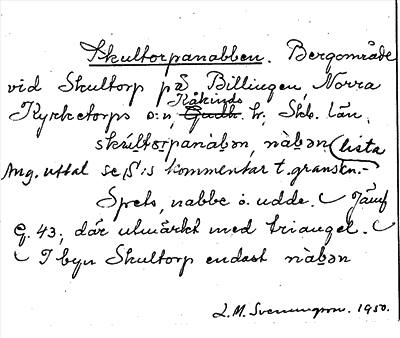 Skultorpanabben. Bergområde
vid Skultorp på Billingen, Norra
Kåkinds
Kyrketorps s:n, Gudh. hr, Skb. län,
skúltorpanàbən, nàbən (lista
Ang. uttal se S:s kommentar t. granskn.-
Spets, nabbe o. udde. Jämf
g. 43, där utmärkt med triangel.
I byn Skultorp endast nàbən
L. M. Svenungson. 1950.